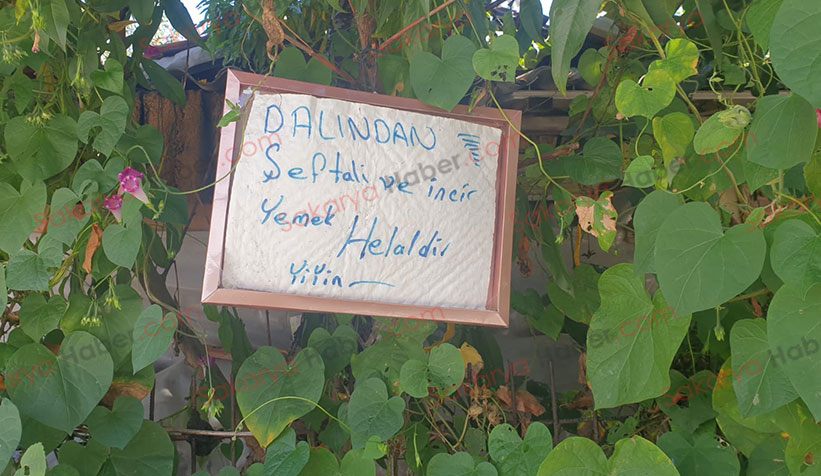 DALINDAN
Şeftali ve incir
Yemek Helaldir
YiYin
sakarya Haber.com